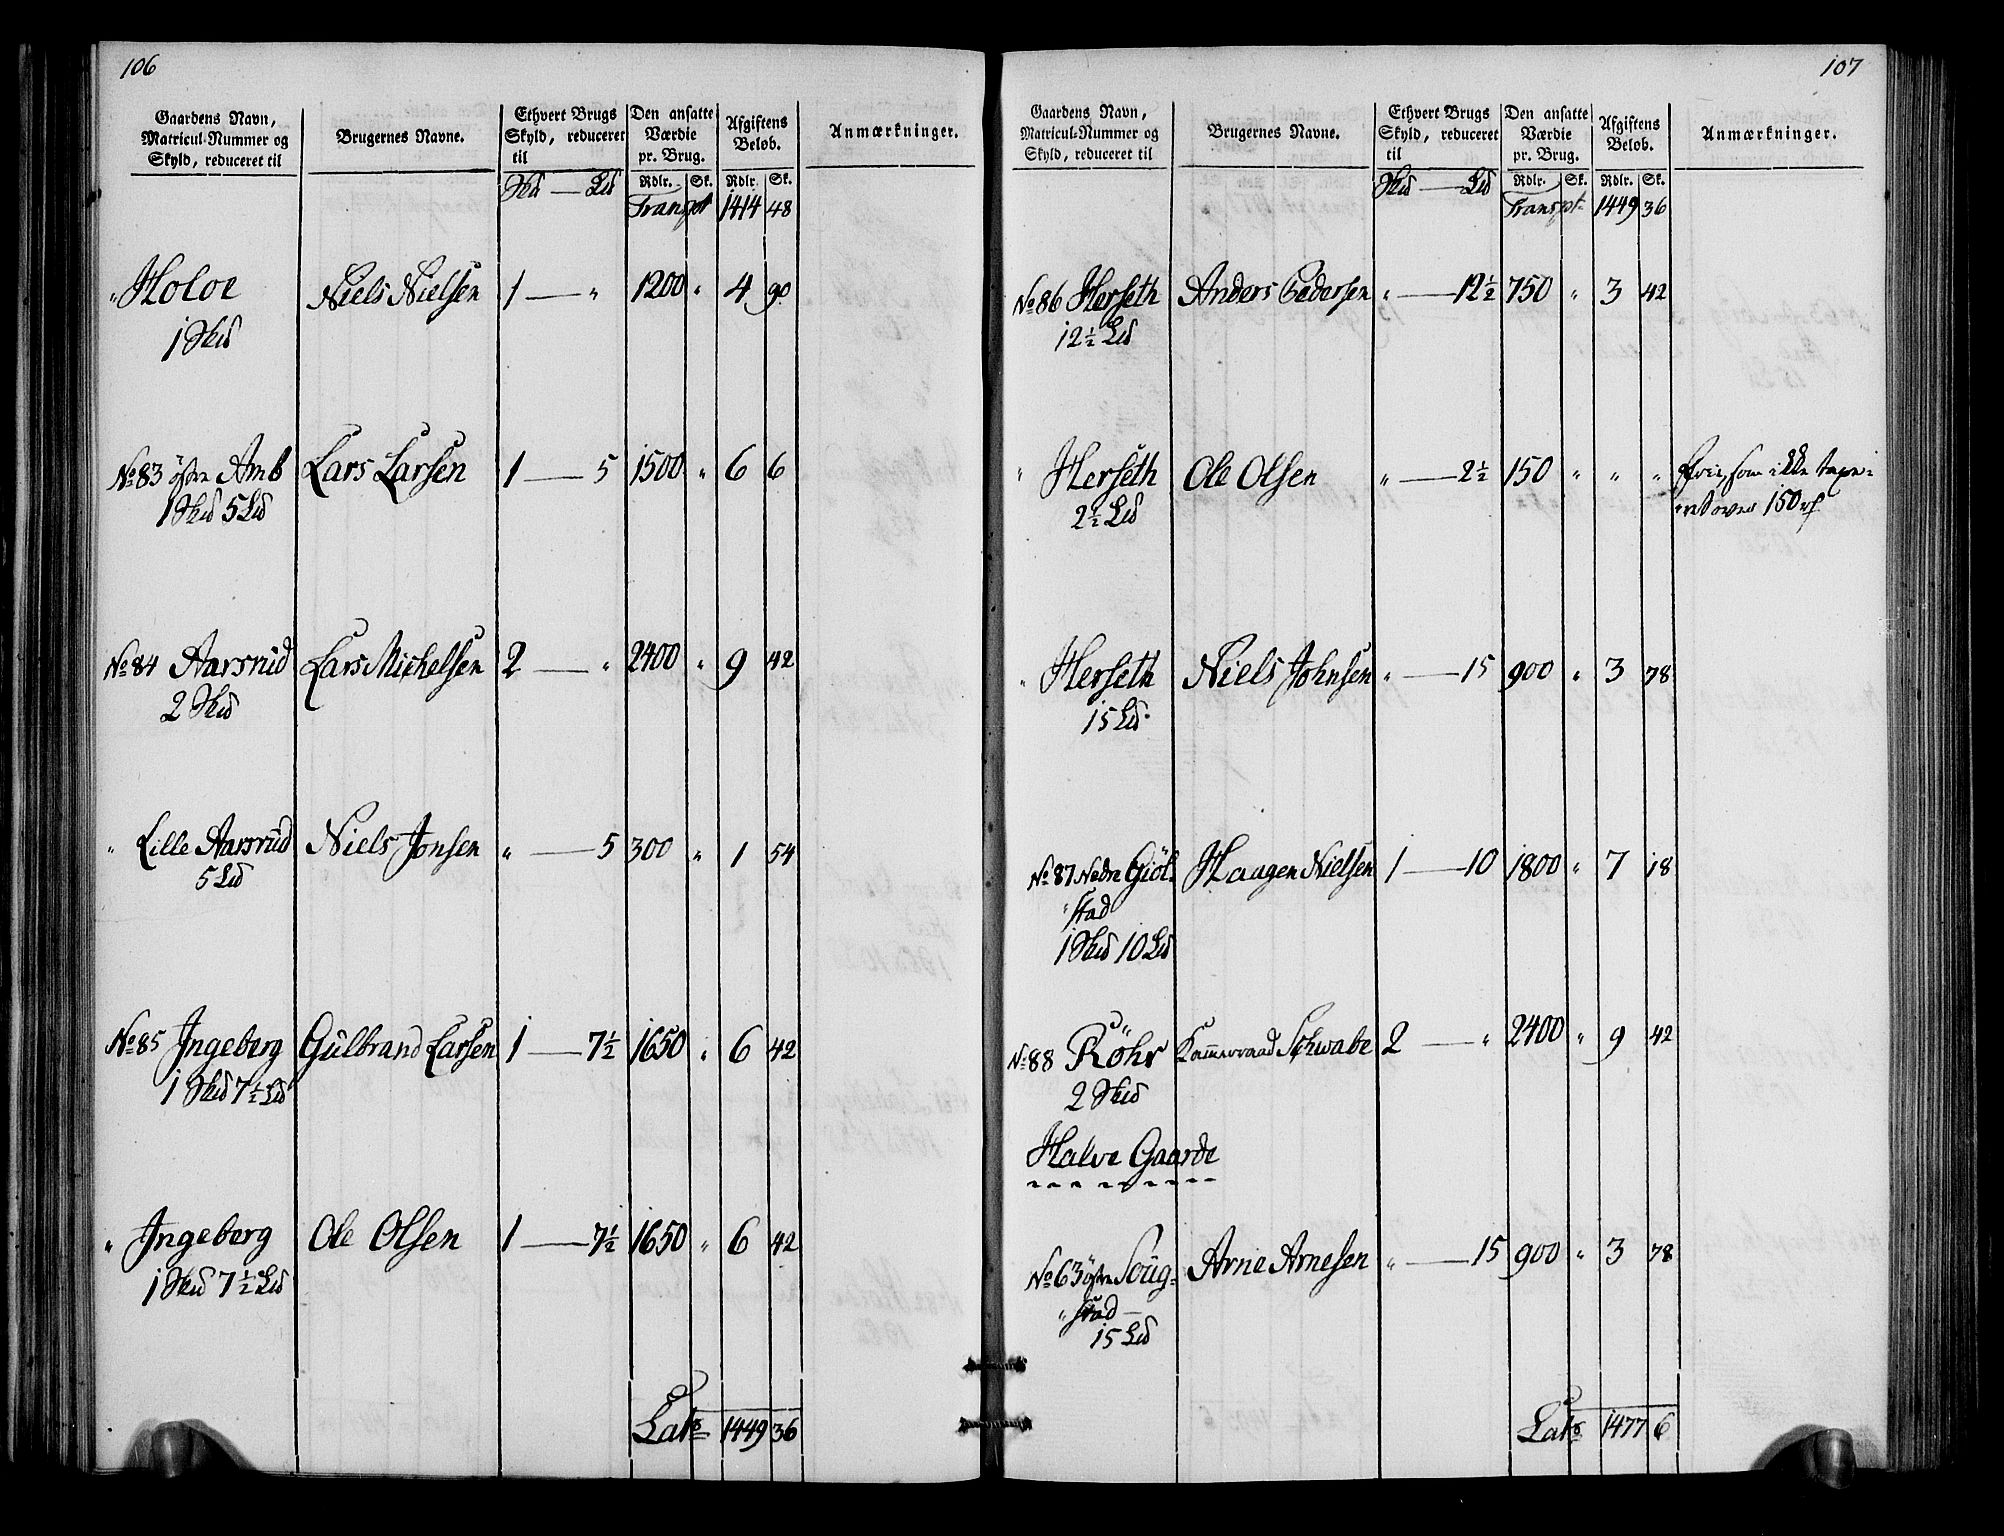 106
Gaardens Navn, Matricul-Nummer og Skyld, reduceret til | Brugernes Navne. | Ethvert Brugs Skyld, reduceret til | Den ansatte Værdie pr. Brug. | Afgiftens Beløb. | Anmærkninger.
Skd — Ld | Rdlr. | Sk. | Rdlr. | Sk.
Transpt 1414 48
" Holoe Niels Nielsen 1 — " 1200 " 4 90
1 Skd
No 83 östre Amb Lars Larsen 1 — 5 1500 " 6 6
1 Skd 5 Ld
No 84 Aarsrud Lars Michelsen 2 — " 2400 " 9 42
2 Skd
" Lille Aarsrud Niels Jonsen " — 5 300 " 1 54
5 Ld
No 85 Ingeberg Gulbrand Larsen 1 — 7½ 1650 " 6 42
1 Skd 7½ Ld
" Ingeberg Ole Olsen 1 — 7½ 1650 " 6 42
1 Skd 7½ Ld
Lats 1449 36
107
Gaardens Navn, Matricul-Nummer og Skyld, reduceret til | Brugernes Navne. | Ethvert Brugs Skyld, reduceret til | Den ansatte Værdie pr. Brug. | Afgiftens Beløb. | Anmærkninger.
Skd — Ld | Rdlr. | Sk. | Rdlr. | Sk.
Transpt 1449 36
No 86 Herseth Anders Pedersen " — 12½ 750 " 3 42
12½ Ld
" Herseth Ole Olsen " — 2½ 150 " " " Frie, som ikke taxe-
2½ Ld ret over 150 rd
" Herseth Niels Johnsen " — 15 900 " 3 78
15 Ld.
No 87 Nedre Giöl- Haagen Nielsen 1 — 10 1800 " 7 18
" stad
1 Skd 10 Ld
No 88 Röhr Kammerraad Schwabe 2 — " 2400 " 9 42
2 Skd
Halve Gaarde
No 63 östre Soug- Arne Arnesen " — 15 900 " 3 78
" stad —
15 Ld
Lats 1477 6